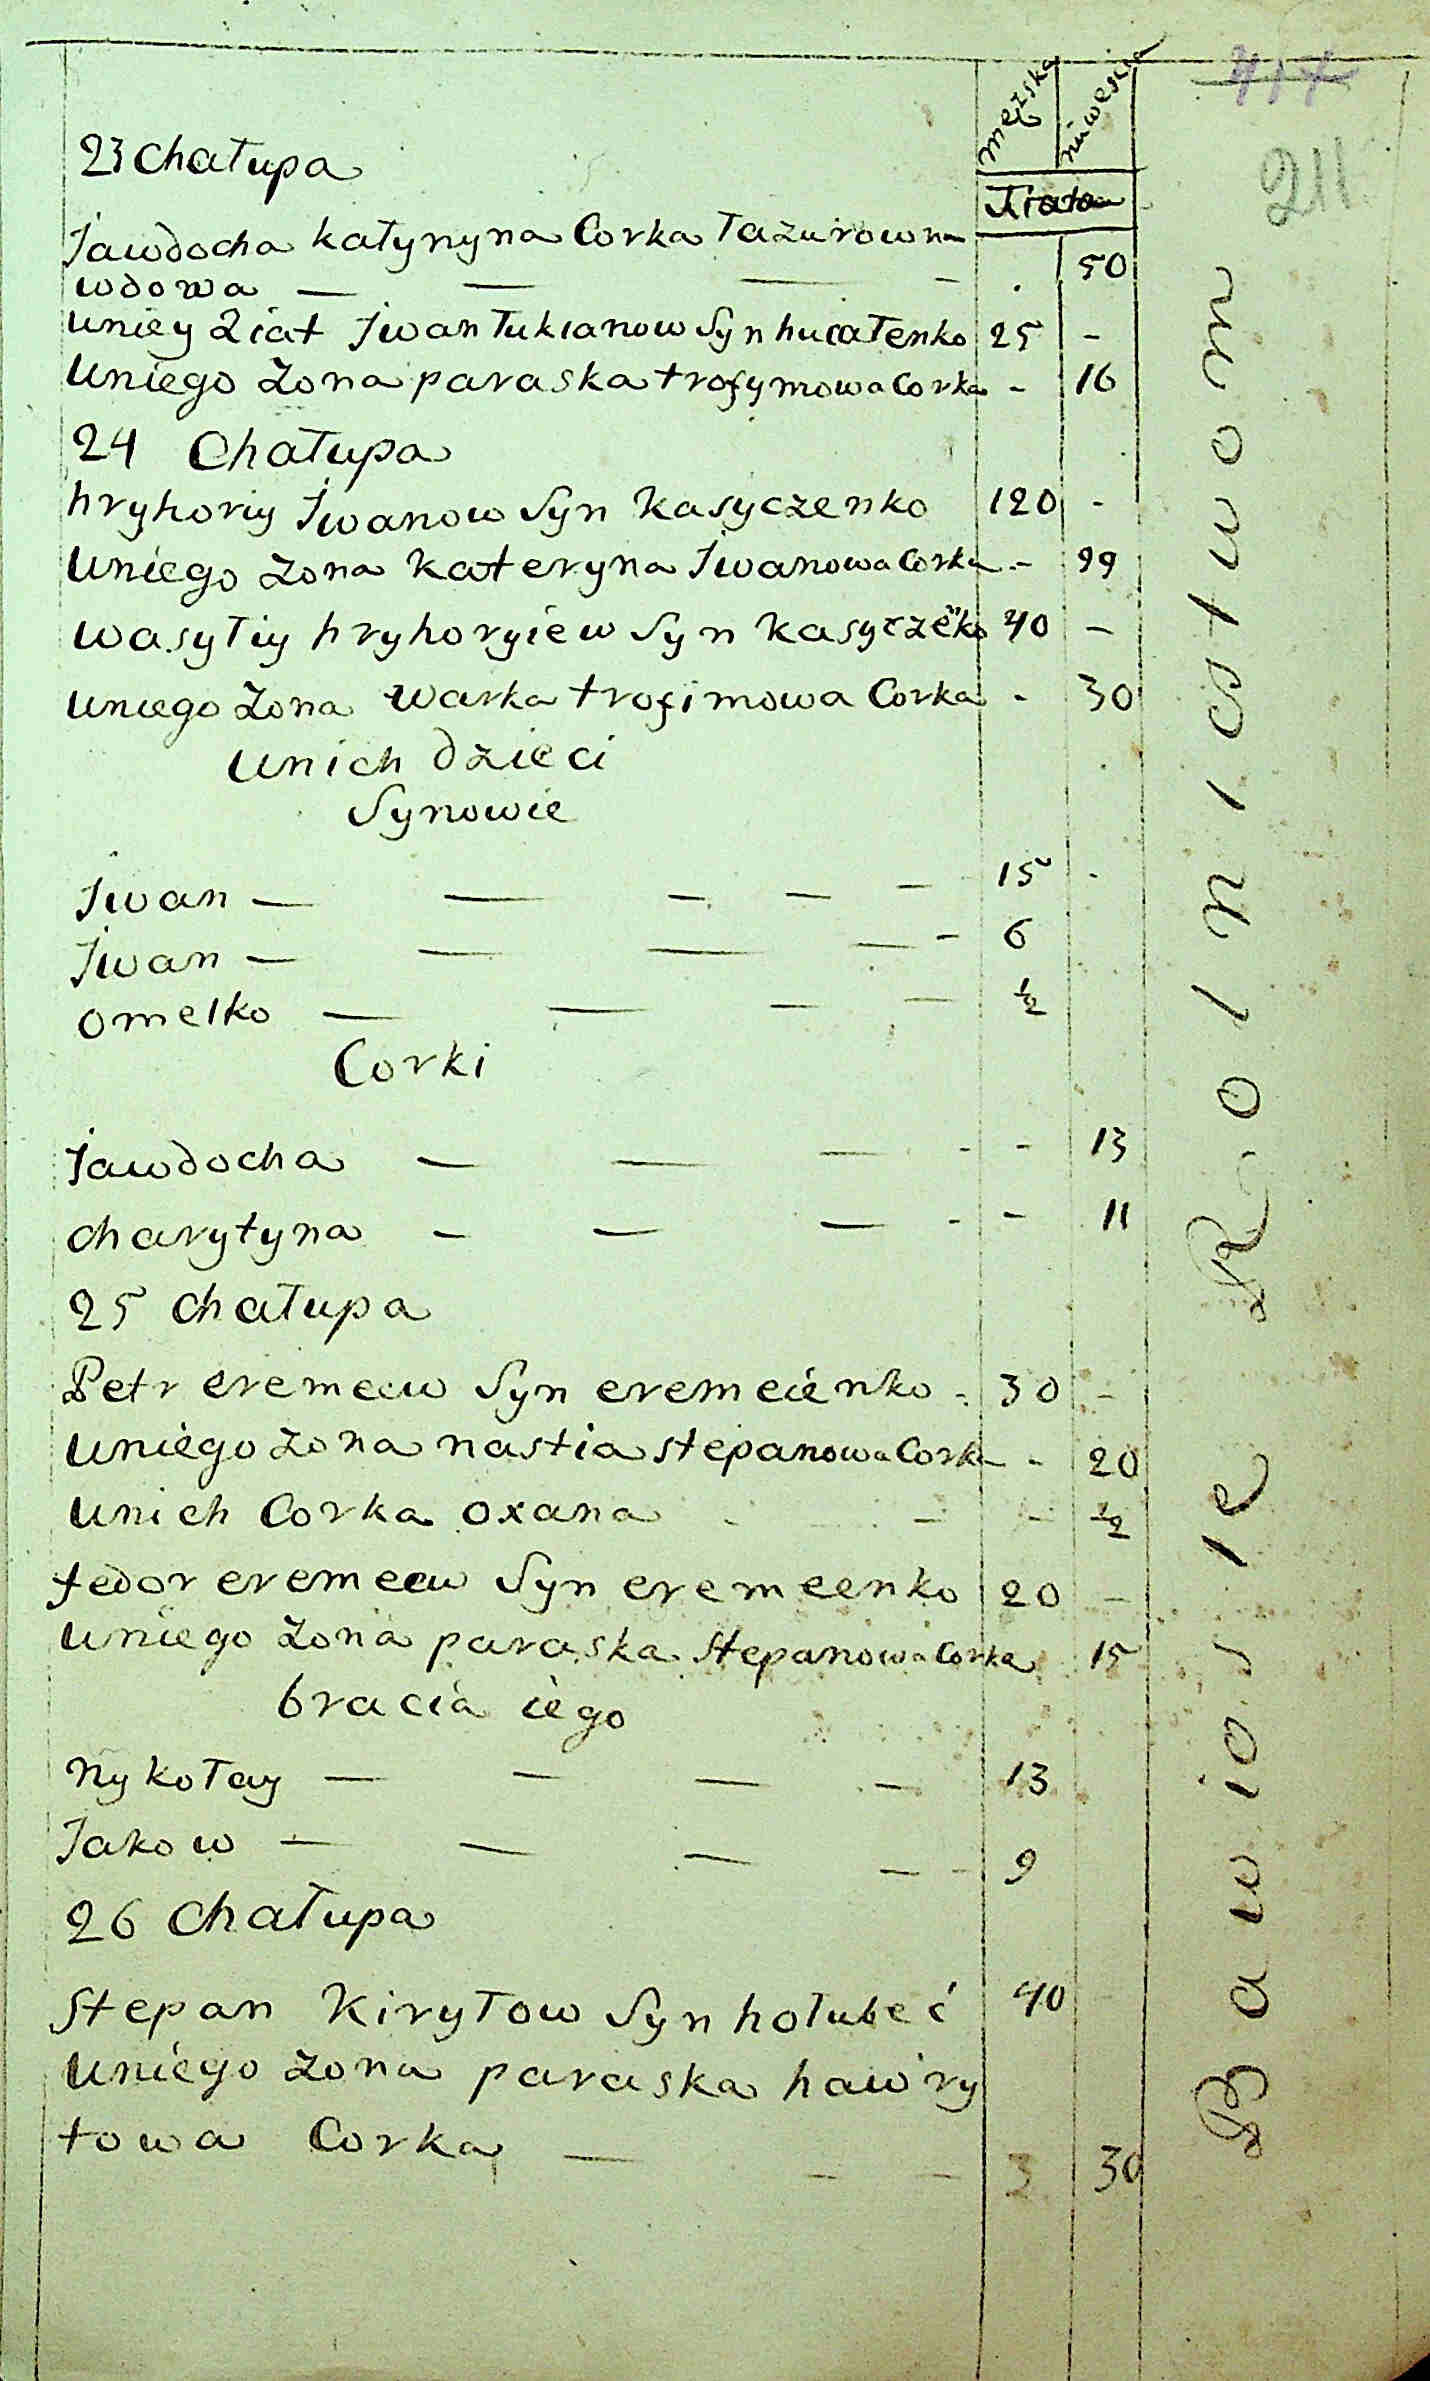 417
211
męzska niiwesia
Łiata
23 Chałupa
Jawdocha kałynyna Corka Łazurowna
wdowa — — — — . 50
uniey Ziat Jwan Łukianow Syn hucałenko 25 -
Uniego Zona paraska trofymowa Corka - 16
24 Chałupa
hryhoriy Jwanow Syn Kasyczenko 120 -
Uniego Zona Kateryna Jwanowa Corka - 99
wasyłiy hryhoryiew Syn Kasyczeko 40 -
Uniego Zona Warka trofimowa Corka - 30
Unich dzieci
Synowie
Jwan — — — — — 15 -
Jwan — — — — - 6
Omelko — — — — ½
Corki
Jawdocha — — — - - 13
Charytyna — — — - - 11
25 Chałupa
Petr eremeew Syn eremeienko - 30 -
Uniego Zona nastia Stepanowa Corka - 20
Unich Corka oxana - - - ½
fedor eremeew Syn eremeenko 20 -
Uniego Zona paraska Stepanowa Corka 15
bracia iego
Nykołay — — — — 13
Jakow — — — — - 9
26 Chałupa
Stepan Kiryłow Syn hołubeć 40
Uniego Zona paraska hawry
łowa Corka — — — 3 30
Bawiąsie Rolnictwom